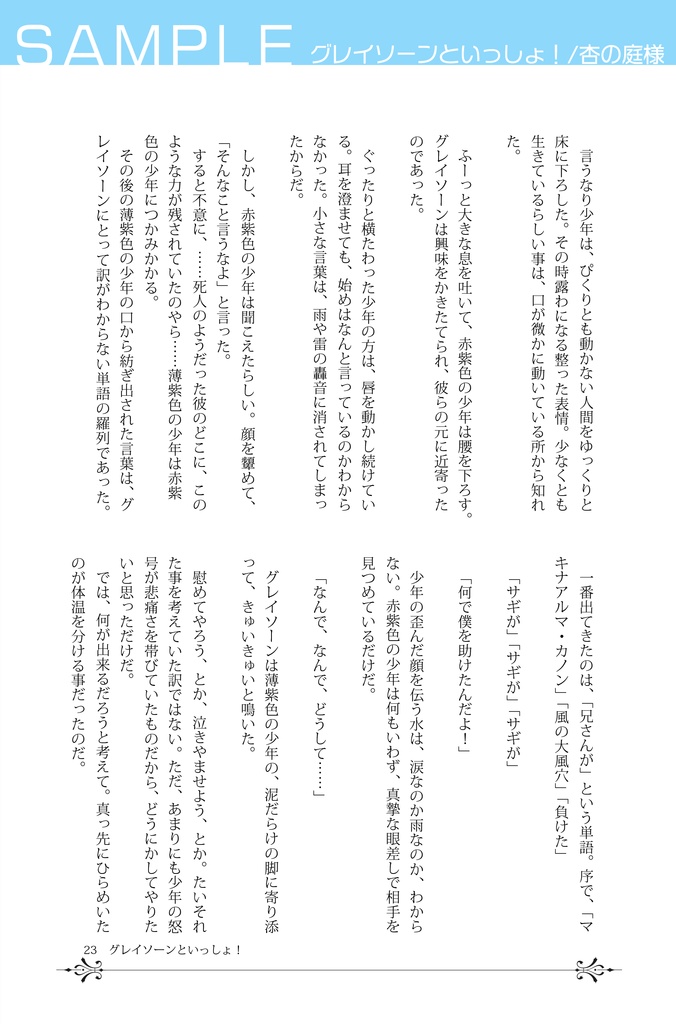 SAMPLE グレイソーンといっしょ！/杏の庭様
　言うなり少年は、ぴくりとも動かない人間をゆっくりと
床に下ろした。その時露わになる整った表情。少なくとも
生きているらしい事は、口が微かに動いている所から知れ
た。
　ふーっと大きな息を吐いて、赤紫色の少年は腰を下ろす。
グレイソーンは興味をかきたてられ、彼らの元に近寄った
のであった。
　ぐったりと横たわった少年の方は、唇を動かし続けてい
る。耳を澄ませても、始めはなんと言っているのかわから
なかった。小さな言葉は、雨や雷の轟音に消されてしまっ
たからだ。
　しかし、赤紫色の少年は聞こえたらしい。顔を顰めて、
「そんなこと言うなよ」と言った。
　すると不意に、……死人のようだった彼のどこに、この
ような力が残されていたのやら……薄紫色の少年は赤紫
色の少年につかみかかる。
　その後の薄紫色の少年の口から紡ぎ出された言葉は、グ
レイソーンにとって訳がわからない単語の羅列であった。
　一番出てきたのは、「兄さんが」という単語。序で、「マ
キナアルマ・カノン」「風の大風穴」「負けた」
「サギが」「サギが」「サギが」
「何で僕を助けたんだよ！」
　少年の歪んだ顔を伝う水は、涙なのか雨なのか、わから
ない。赤紫色の少年は何もいわず、真摯な眼差しで相手を
見つめているだけだ。
「なんで、なんで、どうして……」
　グレイソーンは薄紫色の少年の、泥だらけの脚に寄り添
って、きゅいきゅいと鳴いた。
　慰めてやろう、とか、泣きやませよう、とか。たいそれ
た事を考えていた訳ではない。ただ、あまりにも少年の怒
号が悲痛さを帯びていたものだから、どうにかしてやりた
いと思っただけだ。
　では、何が出来るだろうと考えて。真っ先にひらめいた
のが体温を分ける事だったのだ。
23　グレイソーンといっしょ！